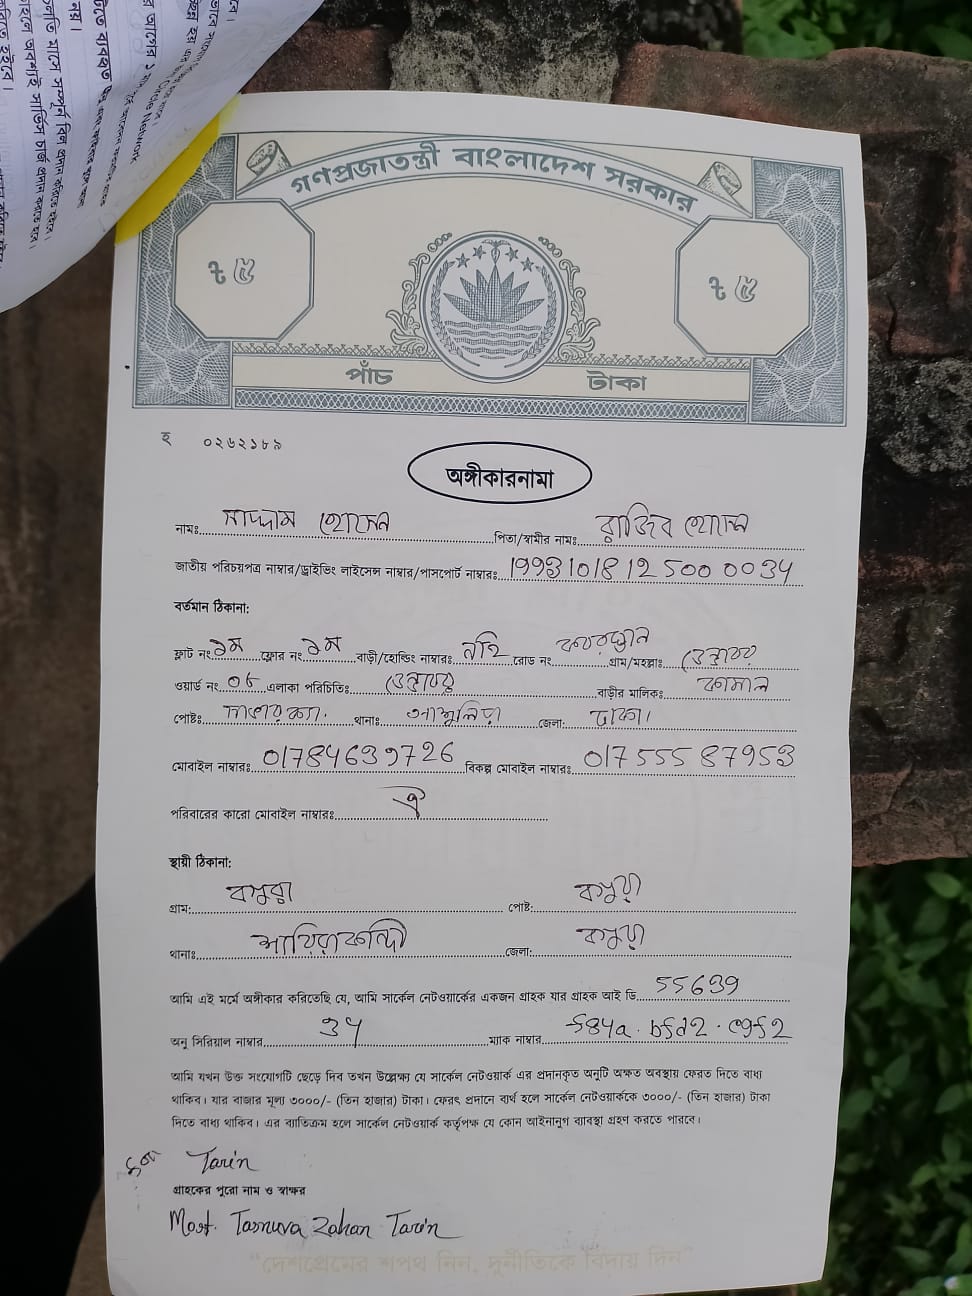 গণপ্রজাতন্ত্রী বাংলাদেশ সরকার
৳ ৫ ৳ ৫
পাঁচ টাকা
হ ০২৬২১৮৯
অঙ্গীকারনামা
নামঃ সাদ্দাম হোসেন পিতা/স্বামীর নামঃ রাজিব হোসেন
জাতীয় পরিচয়পত্র নাম্বার/ড্রাইভিং লাইসেন্স নাম্বার/পাসপোর্ট নাম্বারঃ 19931018125000034
বর্তমান ঠিকানা:
ফ্লাট নং ১ম ফ্লোর নং ১ম বাড়ী/হোল্ডিং নাম্বারঃ নাই রোড নং কবরস্থান গ্রাম/মহল্লাঃ
ওয়ার্ড নং 06 এলাকা পরিচিতিঃ বাড়ীর মালিকঃ কামাল
পোষ্টঃ থানাঃ আশুলিয়া জেলা: ঢাকা।
মোবাইল নাম্বারঃ 01784639726 বিকল্প মোবাইল নাম্বারঃ 01755587953
পরিবারের কারো মোবাইল নাম্বারঃ ঐ
স্থায়ী ঠিকানা:
গ্রাম: বগুড়া পোষ্ট: বগুড়া
থানাঃ সারিয়াকান্দী জেলা: বগুড়া
আমি এই মর্মে অঙ্গীকার করিতেছি যে, আমি সার্কেল নেটওয়ার্কের একজন গ্রাহক যার গ্রাহক আই ডি 55639
অনু সিরিয়াল নাম্বার 34 ম্যাক নাম্বার f84a.bfd2.c9f2
আমি যখন উক্ত সংযোগটি ছেড়ে দিব তখন উল্লেক্ষ্য যে সার্কেল নেটওয়ার্ক এর প্রদানকৃত অনুটি অক্ষত অবস্থায় ফেরত দিতে বাধ্য
থাকিব। যার বাজার মূল্য ৩০০০/- (তিন হাজার) টাকা। ফেরৎ প্রদানে ব্যর্থ হলে সার্কেল নেটওয়ার্ককে ৩০০০/- (তিন হাজার) টাকা
দিতে বাধ্য থাকিব। এর ব্যাতিক্রম হলে সার্কেল নেটওয়ার্ক কর্তৃপক্ষ যে কোন আইনানুগ ব্যাবস্থা গ্রহণ করতে পারবে।
Tarin
গ্রাহকের পুরো নাম ও স্বাক্ষর
Most. Tasnuva Zahan Tarin
"দেশপ্রেমের শপথ নিন, দুর্নীতিকে বিদায় দিন"